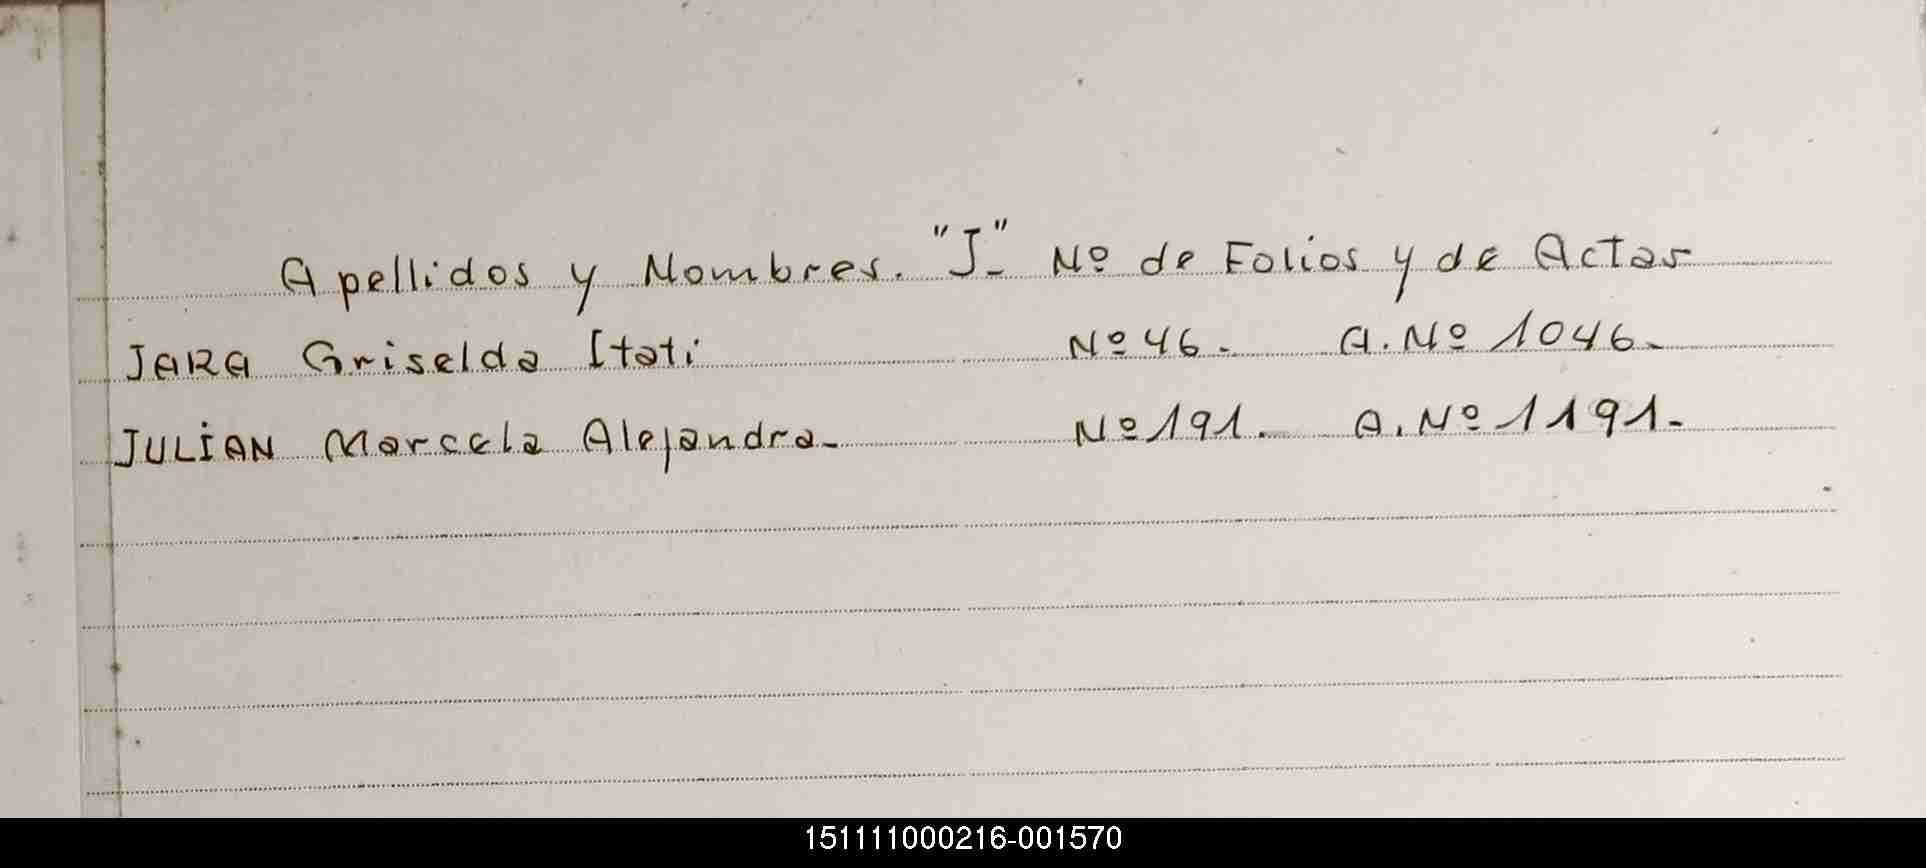 Apellidos y Nombres. "J"- Nº de Folios y de Actas
JARA Griselda Itati Nº 46. A. Nº 1046.
JULIAN Marcela Alejandra. Nº 191. A. Nº 1191.
151111000216-001570